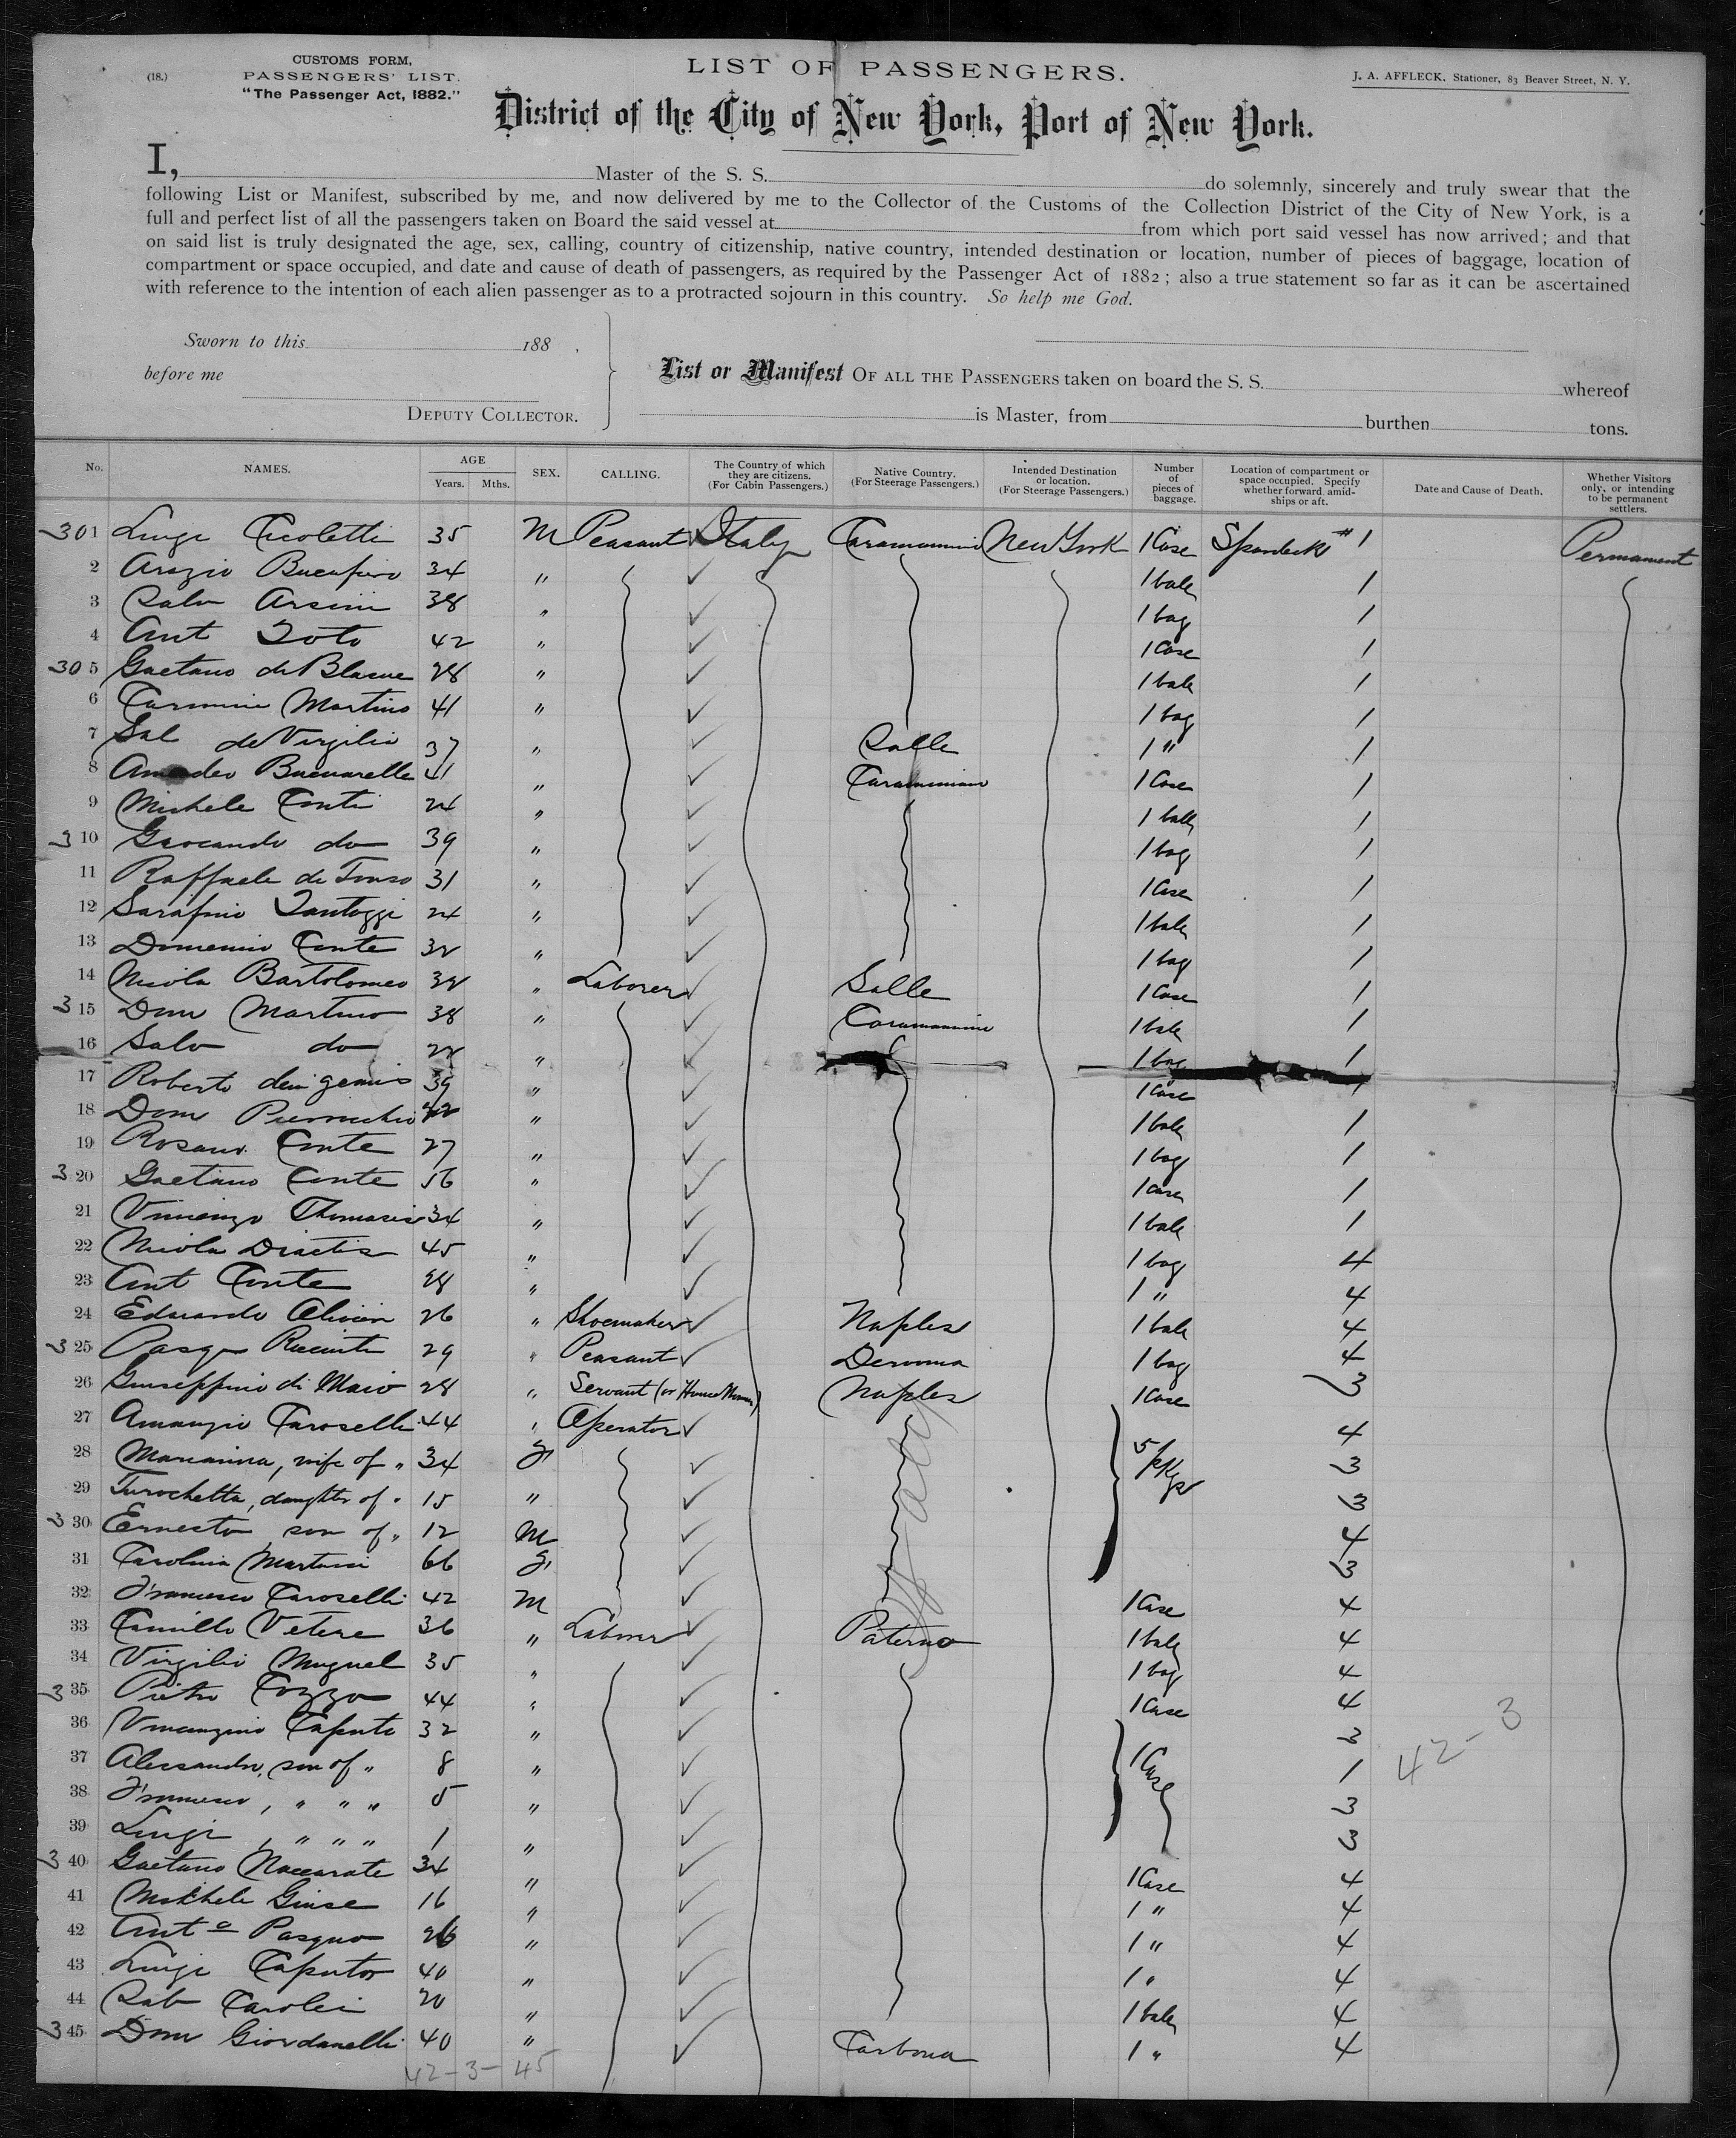 (18.)
CUSTOMS FORM,
PASSENGERS' LIST.
"The Passenger Act, 1882."
LIST OF PASSENGERS.
J. A. AFFLECK, Stationer, 83 Beaver Street, N. Y.
District of the City of New York, Port of New York.
I, Master of the S. S. do solemnly, sincerely and truly swear that the
following List or Manifest, subscribed by me, and now delivered by me to the Collector of the Customs of the Collection District of the City of New York, is a
full and perfect list of all the passengers taken on Board the said vessel at from which port said vessel has now arrived; and that
on said list is truly designated the age, sex, calling, country of citizenship, native country, intended destination or location, number of pieces of baggage, location of
compartment or space occupied, and date and cause of death of passengers, as required by the Passenger Act of 1882; also a true statement so far as it can be ascertained
with reference to the intention of each alien passenger as to a protracted sojourn in this country. So help me God.
Sworn to this 188 ,
before me
DEPUTY COLLECTOR.
List or Manifest OF ALL THE PASSENGERS taken on board the S. S. whereof
is Master, from burthen tons.
No. NAMES. AGE Years. Mths. SEX. CALLING. The Country of which they are citizens. (For Cabin Passengers.) Native Country. (For Steerage Passengers.) Intended Destination or location. (For Steerage Passengers.) Number of pieces of baggage. Location of compartment or space occupied. Specify whether forward, amidships or aft. Date and Cause of Death. Whether Visitors only, or intending to be permanent settlers.
301 Luigi 35 M Peasant Italy New York 1 Case #1 Permanent
2 34 " 1 bale 1
3 Salv 38 " 1 bag 1
4 Ant Toto 42 " 1 Case 1
305 Gaetano 28 " 1 bale 1
6 Carmine Martino 41 " 1 bag 1
7 Sal de Virgilio 37 " Salle 1 " 1
8 Amadeo 41 " 1 Case 1
9 Michele Conti 24 " 1 bale 1
3 10 do 39 " 1 bag 1
11 Raffaele de 31 " 1 Case 1
12 Sarafino 24 " 1 bale 1
13 Domenico Conte 32 " 1 bag 1
14 Nicola Bartolomeo 38 " Laborer Salle 1 Case 1
3 15 Dom Martino 38 " 1 bale 1
16 Salv do 22 " 1 bag 1
17 Roberto 39 " 1 Case 1
18 Dom " 1 bale 1
19 Conte 27 " 1 bag 1
3 20 Gaetano Conte 56 " 1 Case 1
21 Vincenzo 34 " 1 bale 1
22 Nicola 45 " 1 bag 4
23 Ant Conte 28 " 1 " 4
24 Eduardo 26 " Shoemaker Naples 1 bale 4
3 25 Pasq 29 " Peasant 1 bag 4
26 Giuseppino di Maio 28 " Servant (or ) Naples 1 Case 3
27 Caroselli 44 " Operator 5 pkgs 4
28 Marianna, wife of " 34 F 3
29 daughter of " 15 " 3
3 30 Ernesto, son of " 12 M 4
31 Carolina 66 F 3
32 Francesco Caroselli 42 M 1 Case 4
33 Camillo Vetere 36 " Laborer Paterno 1 bale 4
34 Virgilio 35 " 1 bag 4
3 35 Pietro Cozza 44 " 1 Case 4
36 Caputo 32 " 1 Case 3
37 Alessandro, son of " 8 " 1
38 Francesco, " " " 5 " 3
39 Luigi, " " " 1 " 3
3 40 Gaetano Naccarato 34 " 1 Case 4
41 Michele 16 " 1 " 4
42 Ant° 26 " 1 " 4
43 Luigi Caputo 40 " 1 " 4
44 20 " 1 bale 4
3 45 Dom Giordanelli 40 " 1 " 4
42-3
42-3-45